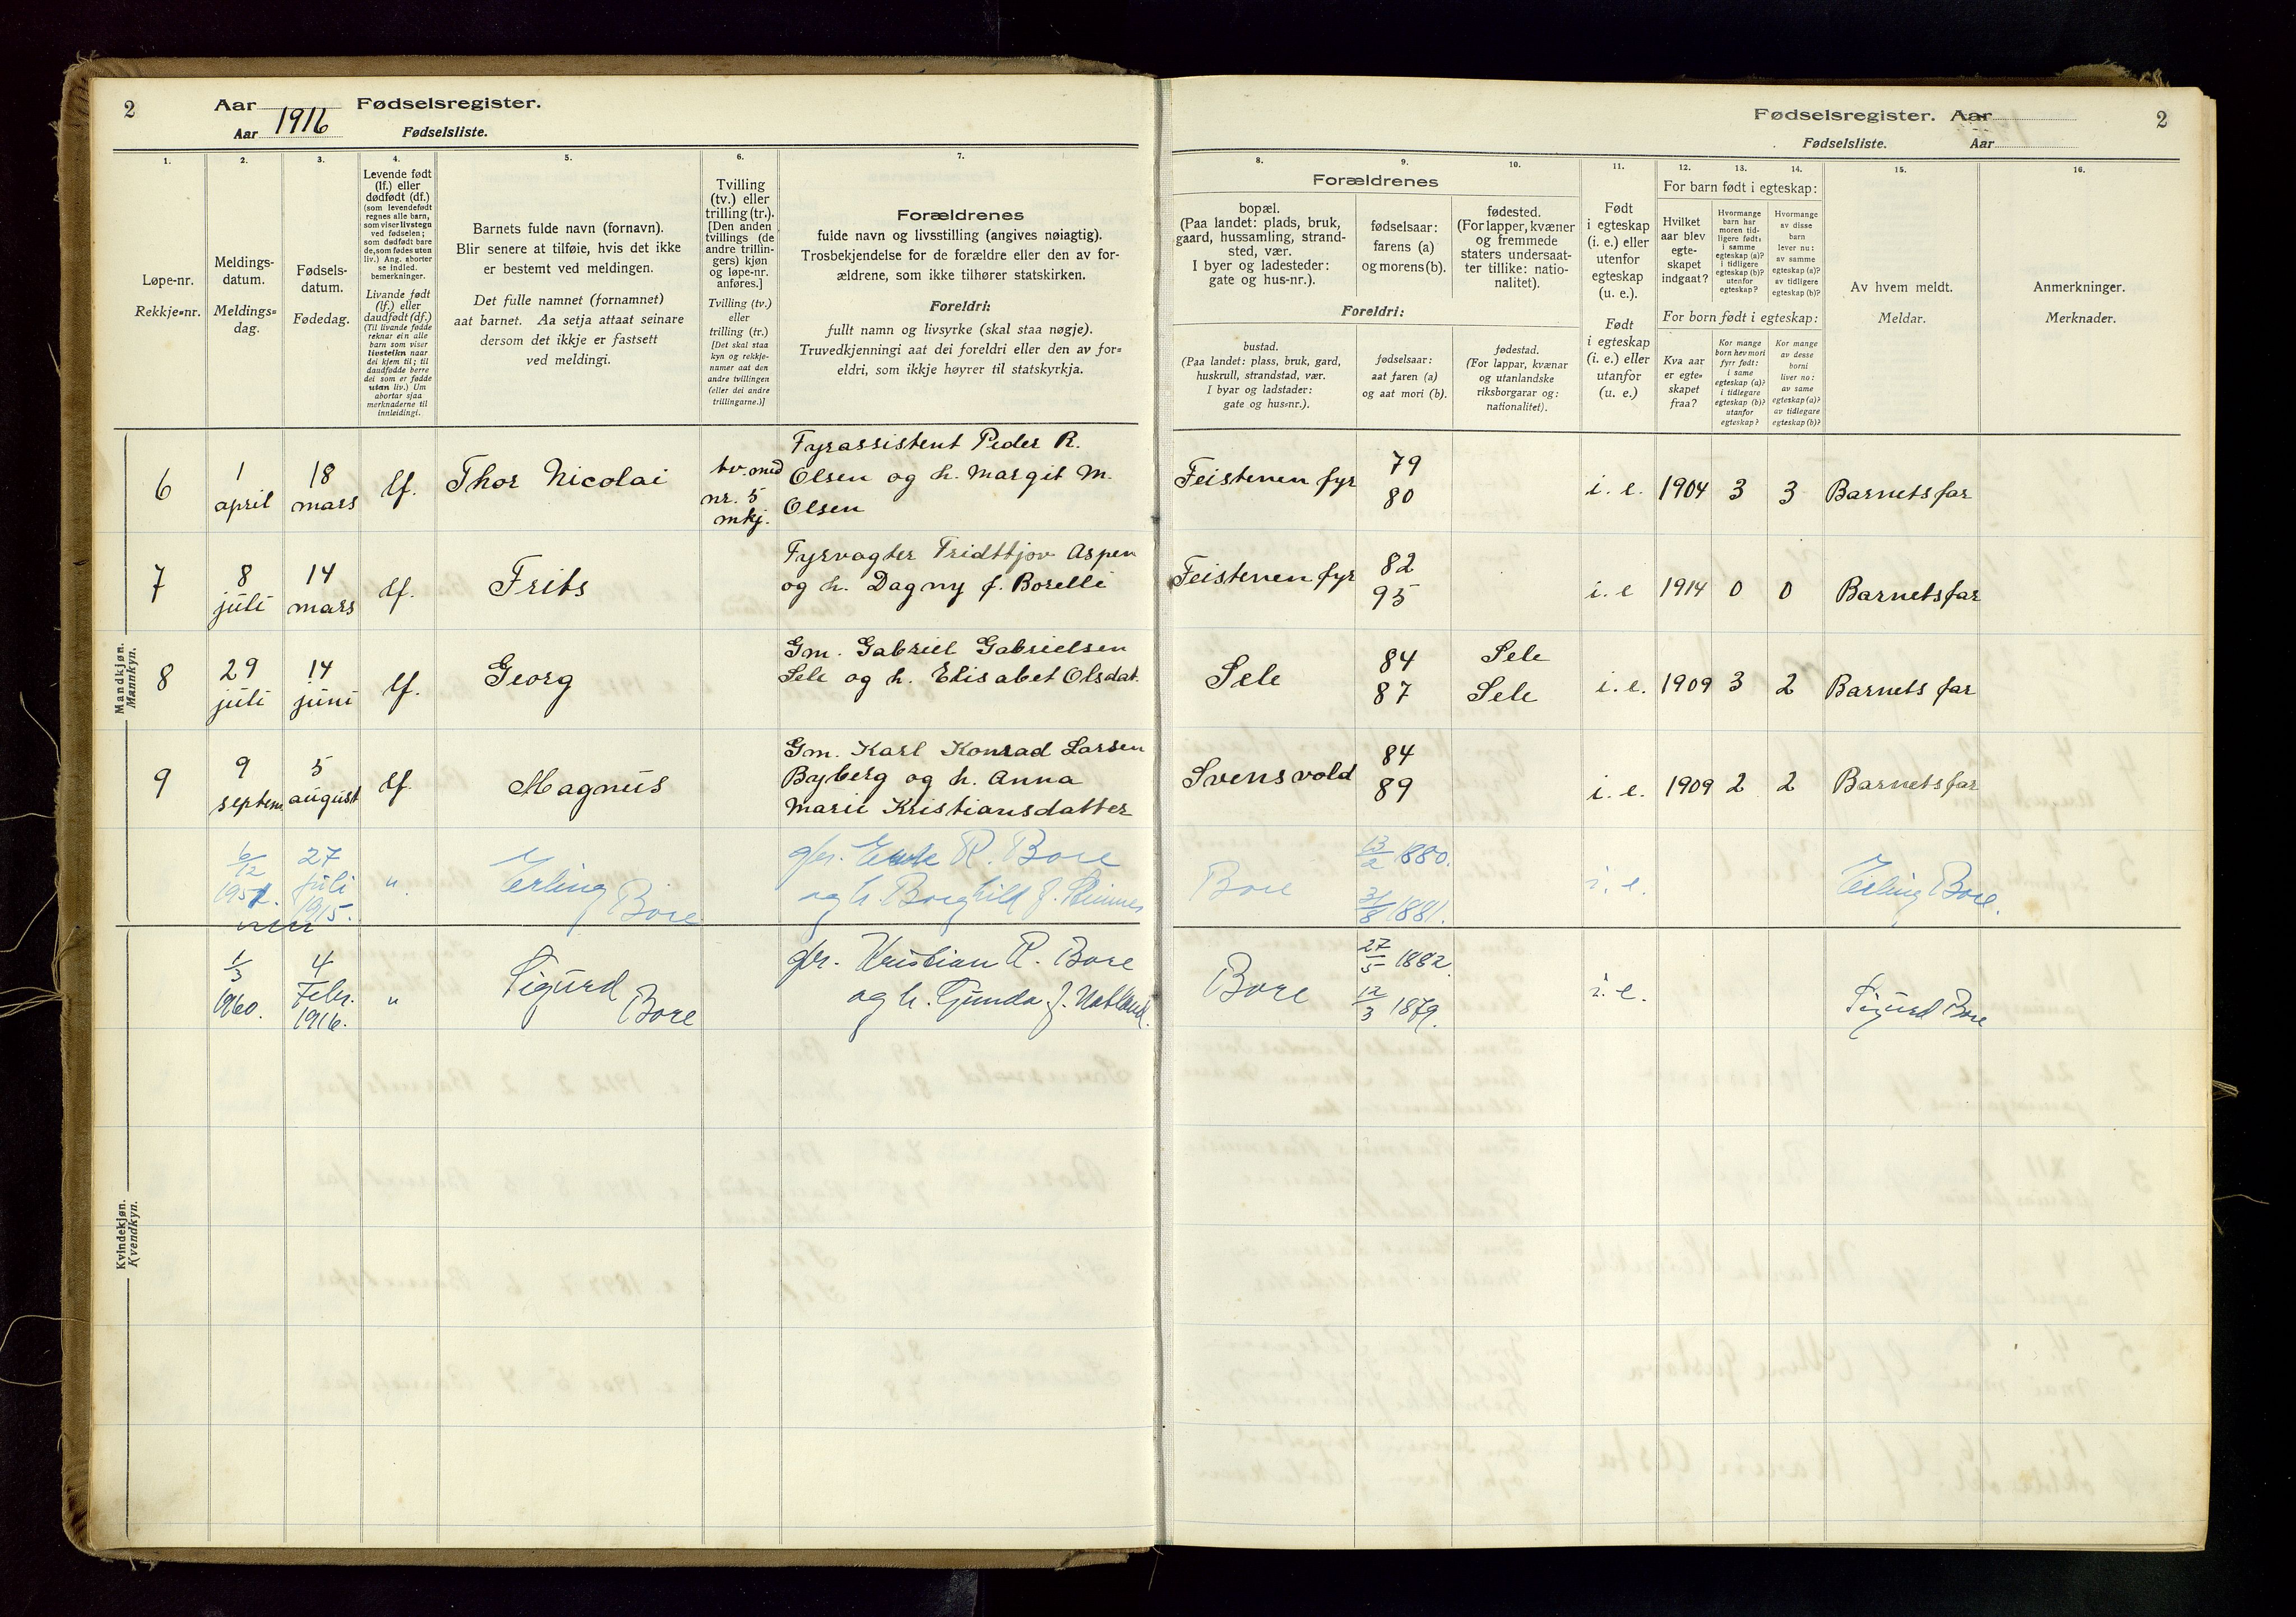 2
Aar
Fødselsregister.
Aar 1916
Fødselsliste.
1.
Løpe-nr.
Rekkje=nr.
2.
Meldings-
datum.
Meldings=
dag.
3.
Fødsels-
datum.
Fødedag.
4.
Levende født
(lf.) eller
dødfødt (df.)
(som levendefødt
regnes alle barn,
som viser livstegn
ved fødselen;
som dødfødt bare
de, som fødes uten
liv.) Ang. aborter
se indled.
bemerkninger.
Livande født
(lf.) eller
daudfødt (df.)
(Til livande fødde
reknar ein alle
barn som viser
livsteikn naar
dei kjem til; til
daudfødde berre
dei som er fødde
utan liv.) Um
abortar sjaa
merknaderne til
innleidingi.
5.
Barnets fulde navn (fornavn).
Blir senere at tilføie, hvis det ikke
er bestemt ved meldingen.
Det fulle namnet (fornamnet)
aat barnet. Aa setja attaat seinare
dersom det ikkje er fastsett
ved meldingi.
6.
Tvilling
(tv.) eller
trilling (tr.).
[Den anden
tvillings (de
andre trillin-
gers) kjøn
og løpe-nr.
anføres.]
Tvilling (tv.)
eller
trilling (tr.)
[Det skal staa
kyn og rekkje-
numer aat den
andre tvillingen
(eller dei andre
trillingarne.)]
7.
Forældrenes
fulde navn og livsstilling (angives nøiagtig).
Trosbekjendelse for de forældre eller den av for-
ældrene, som ikke tilhører statskirken.
Foreldri:
fullt namn og livsyrke (skal staa nøgje).
Truvedkjenningi aat dei foreldri eller den av for=
eldri, som ikkje høyrer til statskyrkja.
Mandkjøn.
Mannkyn.
6
1
april
18
mars
lf.
Thor Nicolai
tv. med
nr. 5
mkj.
Fyrassistent Peder R.
Olsen og h. Margit M.
Olsen
7
8
juli
14
mars
lf.
Frits
Fyrvogter Fridttjov Aspen
og h. Dagny f. Borelli
8
29
juli
14
juni
lf.
Georg
Gm. Gabriel Gabrielsen
Sele og h. Elisabet Olsdat.
9
9
septem
5
august
lf.
Magnus
Gm. Karl Konrad Larsen
Byberg og h. Anna
Marie Kristiansdatter
6/12
1951.
27
juli
1915.
"
Erling
Bore
gbr. R. Bore
og h. Borghild f.
Kvindekjøn.
Kvendkyn.
1/3
1960.
4
Febr.
1916.
"
Sigurd
Bore
gbr. Kristian R. Bore
og h. Gunda f. Natland.
Fødselsregister. Aar
2
Fødselsliste.
Aar
8.
Forældrenes
bopæl.
(Paa landet: plads, bruk,
gaard, hussamling, strand-
sted, vær.
I byer og ladesteder:
gate og hus-nr.).
9.
fødselsaar:
farens (a)
og morens (b).
10.
fødested.
(For lapper, kvæner
og fremmede
staters undersaat-
ter tillike: natio-
nalitet).
Foreldri:
bustad.
(Paa landet: plass, bruk, gard,
huskrull, strandstad, vær.
I byar og ladstader:
gate og hus=nr.).
fødselsaar:
aat faren (a)
og aat mori (b).
fødestad.
(For lappar, kvænar
og utanlandske
riksborgarar og:
nationalitet).
11.
Født
i egteskap
(i. e.) eller
utenfor
egteskap
(u. e.).
Født
i egteskap
(i. e.) eller
utanfor
(u. e.)
12.
13.
14.
For barn født i egteskap:
Hvilket
aar blev
egte-
skapet
indgaat?
Hvormange
barn har
moren tid-
ligere født:
i samme
egteskap (a)?
i tidligere
egteskap (b)?
utenfor
egteskap?
Hvormange
av disse
barn
lever nu:
av samme
egteskap (a)?
av tidligere
egteskap (b)?
For born født i egteskap:
Kva aar
er egte=
skapet
fraa?
Kor mange
born hev mori
fyrr født:
i same
egteskap (a)?
i tidlegare
egteskap (b)?
utanfor
egteskap?
Kor mange
av desse
borni
liver no:
av same
egteskap (a)?
av tidlegare
egteskap (b)?
15.
Av hvem meldt.
Meldar.
16.
Anmerkninger.
Merknader.
Feistenen fyr
79
80
i. e.
1904
3
3
Barnets far
Feistenen fyr
82
95
i. e
1914
0
0
Barnets far
Sele
84
87
Sele
Sele
i. e.
1909
3
2
Barnets far
Svensvold
84
89
i. e.
1909
2
2
Barnets far
Bore
13/2 1880.
31/8 1881.
i. e.
Erling Bore.
Bore
27/5 1882.
12/3 1879.
i. e.
Sigurd Bore